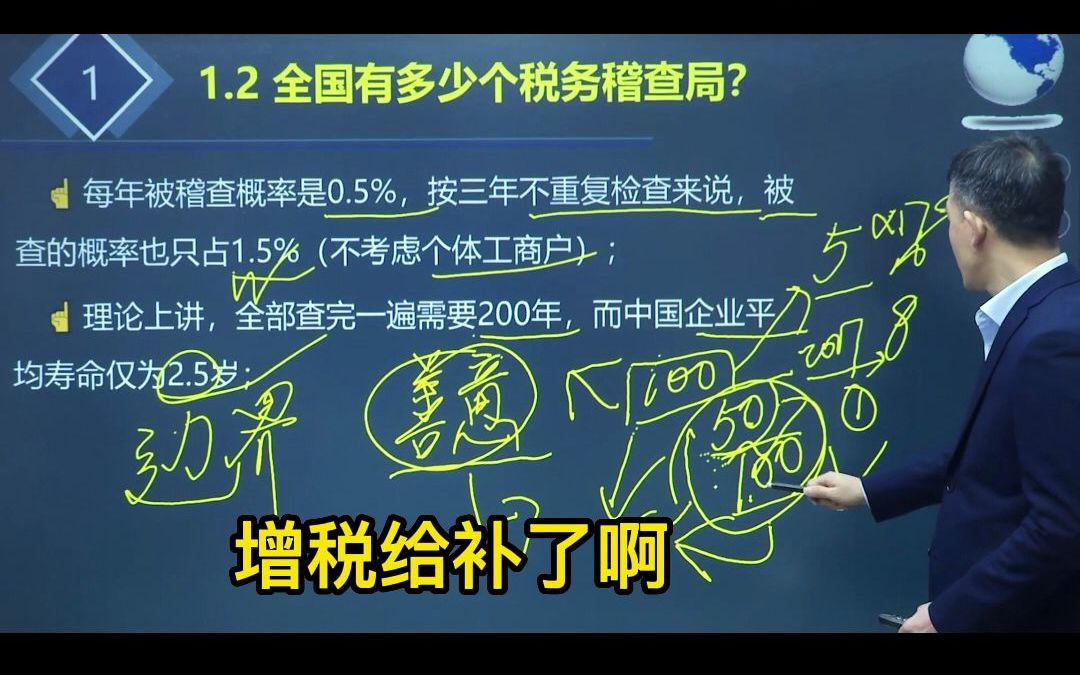 1
1.2 全国有多少个税务稽查局？
☝ 每年被稽查概率是0.5%，按三年不重复检查来说，被
查的概率也只占1.5%（不考虑个体工商户）；
☝ 理论上讲，全部查完一遍需要200年，而中国企业平
均寿命仅为2.5岁；
边界
善意
100
50
100
2017
8
①
5
增税给补了啊